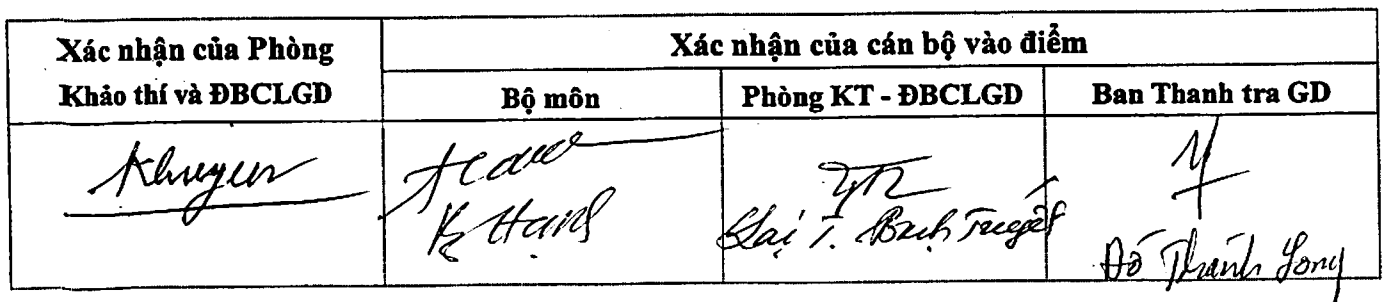 Xác nhận của Phòng
Khảo thí và ĐBCLGD
Xác nhận của cán bộ vào điểm
Bộ môn
Phòng KT - ĐBCLGD
Ban Thanh tra GD
Khuyên
K Hạnh
Lại T. Bạch Tuyết
Đỗ Thành Long